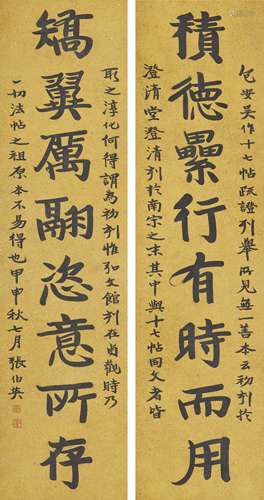 積德纍行有時而用
包安吳作十七帖疏證列舉所見無一善本云初刻於
澄清堂澄清刻於南宋之末其中與十七帖同文者皆
矯翼厲翮恣意所存
取之淳化何得謂為初刻惟弘文館刻在貞觀時乃
一切法帖之祖原本不易得也甲申秋七月張伯英